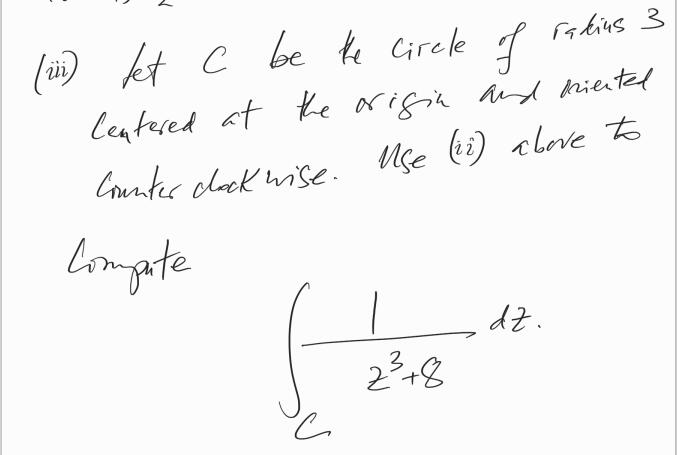 (iii) Let C be the circle of radius 3
centered at the origin and oriented
counter clockwise. Use (ii) above to
Compute
∫_C 1/(z³+8) dz.